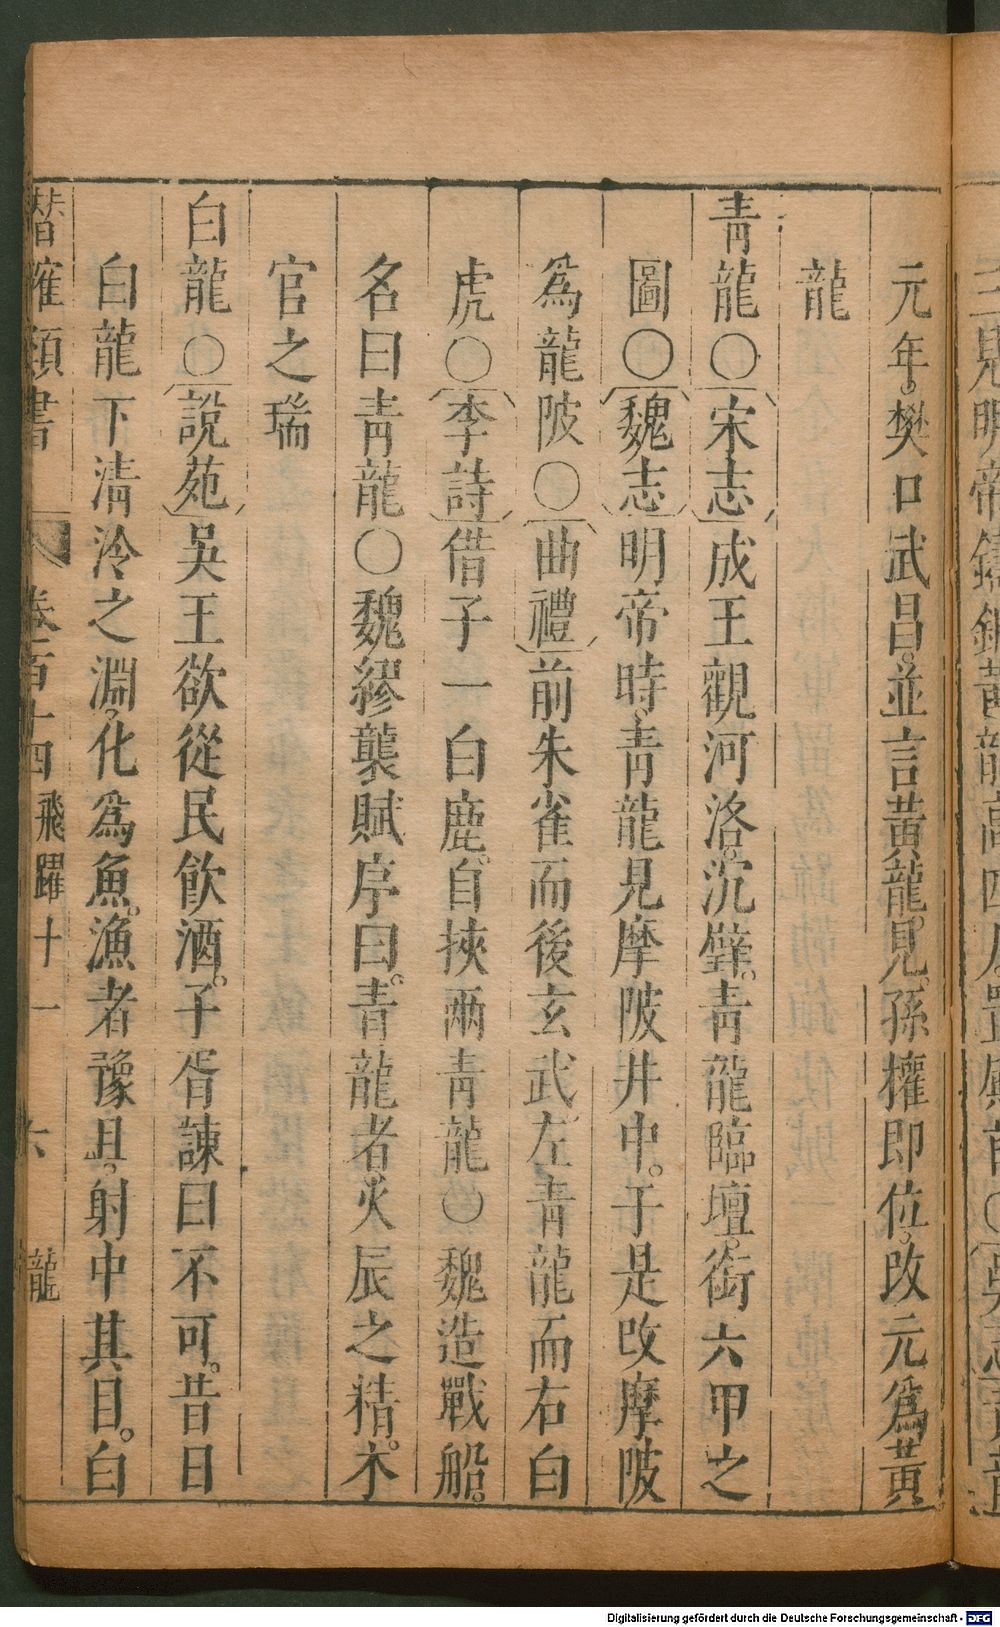 元年。樊口武昌。並言黃龍見。孫權即位。改元爲黃
龍
青龍〇宋志成王觀河洛。沉璧。青龍臨壇。銜六甲之
圖〇魏志明帝時。青龍見摩陂井中。于是改摩陂
爲龍陂〇曲禮前朱雀而後玄武。左青龍而右白
虎〇李詩借予一白鹿。自挾兩青龍〇魏造戰船。
名曰青龍〇魏繆襲賦序曰。青龍者。火辰之精。木
官之瑞
白龍〇說苑吳王欲從民飲酒。子胥諫曰不可。昔日
白龍下清泠之淵。化爲魚。漁者豫且。射中其目。白
潛確類書 卷百十四飛躍十一 六 龍
Digitalisierung gefördert durch die Deutsche Forschungsgemeinschaft - DFG